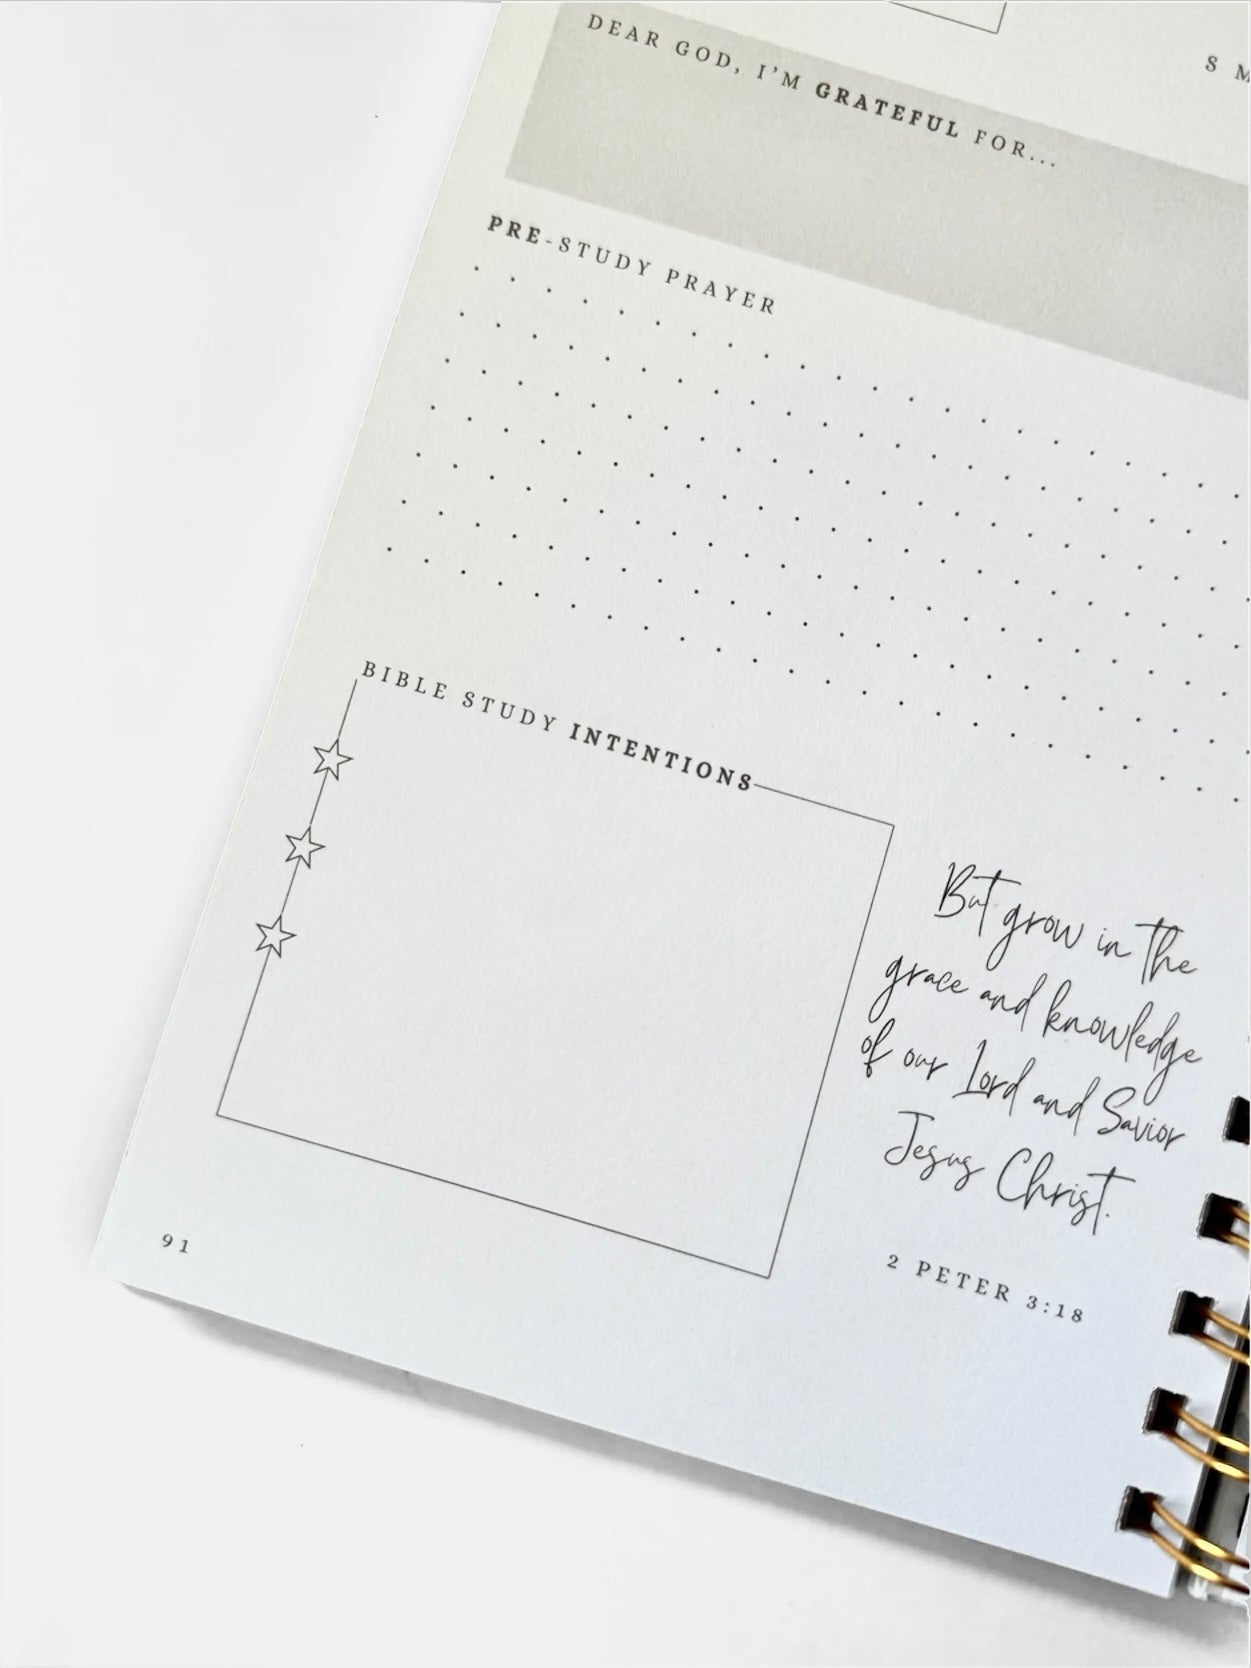 S M
DEAR GOD, I'M GRATEFUL FOR...
PRE-STUDY PRAYER
BIBLE STUDY INTENTIONS
But grow in the
grace and knowledge
of our Lord and Savior
Jesus Christ.
2 PETER 3:18
91